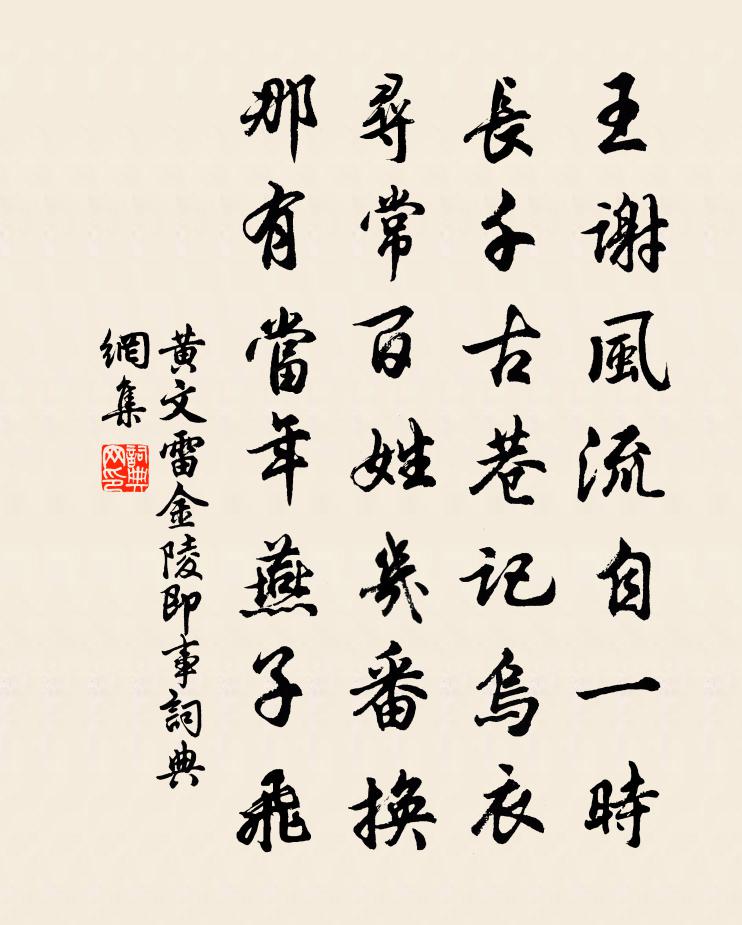 王謝風流自一時
長千古巷記烏衣
尋常百姓幾番換
那有當年燕子飛
黃文雷金陵即事詞典
網集
詞典網印